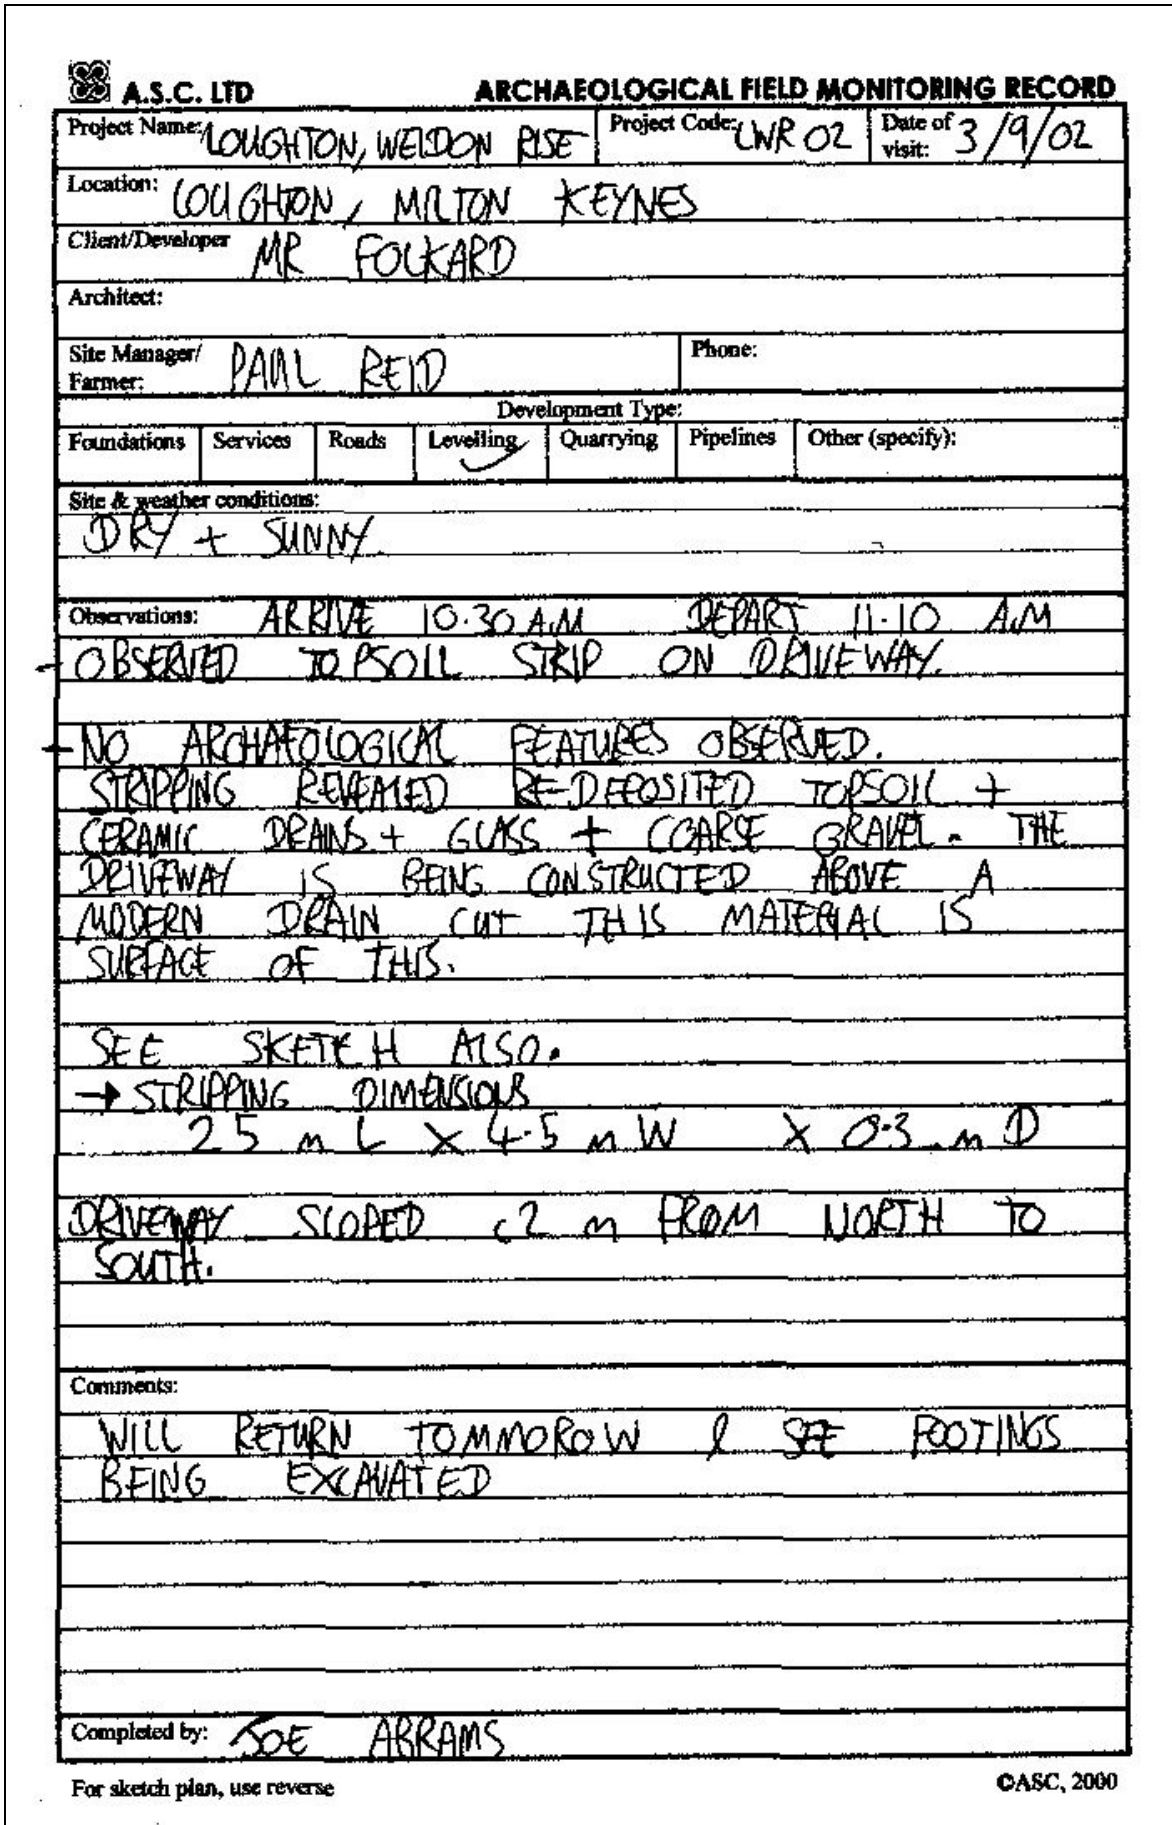 A.S.C. LTD ARCHAEOLOGICAL FIELD MONITORING RECORD
Project Name: LOUGHTON, WELDON RISE Project Code: LWR 02 Date of visit: 3/9/02
Location: LOUGHTON, MILTON KEYNES
Client/Developer MR FOLKARD
Architect:
Site Manager/ Farmer: PAUL REID Phone:
Development Type:
Foundations Services Roads Levelling ✓ Quarrying Pipelines Other (specify):
Site & weather conditions:
DRY + SUNNY.
Observations: ARRIVE 10.30 A.M DEPART 11.10 A.M
- OBSERVED TOPSOIL STRIP ON DRIVEWAY.
- NO ARCHAEOLOGICAL FEATURES OBSERVED.
STRIPPING REVEALED RE-DEPOSITED TOPSOIL +
CERAMIC DRAINS + GLASS + COARSE GRAVEL. THE
DRIVEWAY IS BEING CONSTRUCTED ABOVE A
MODERN DRAIN CUT THIS MATERIAL IS
SURFACE OF THIS.
SEE SKETCH ALSO.
→ STRIPPING DIMENSIONS
25 m L X 4.5 m W X 0.3 m D
DRIVEWAY SLOPED c2 m FROM NORTH TO
SOUTH.
Comments:
WILL RETURN TOMMOROW & SEE FOOTINGS
BEING EXCAVATED
Completed by: JOE ABRAMS
For sketch plan, use reverse ©ASC, 2000